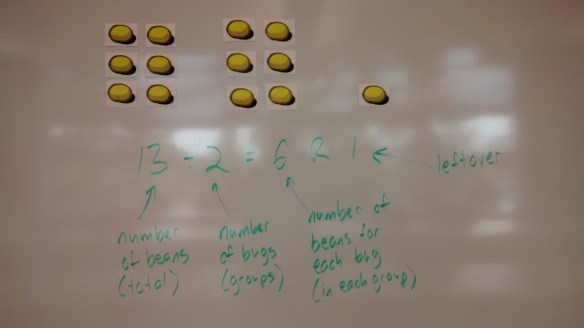 13 ÷ 2 = 6 R 1
leftover
number
of beans
(total)
number
of bugs
(groups)
number of
beans for
each bug
(in each group)